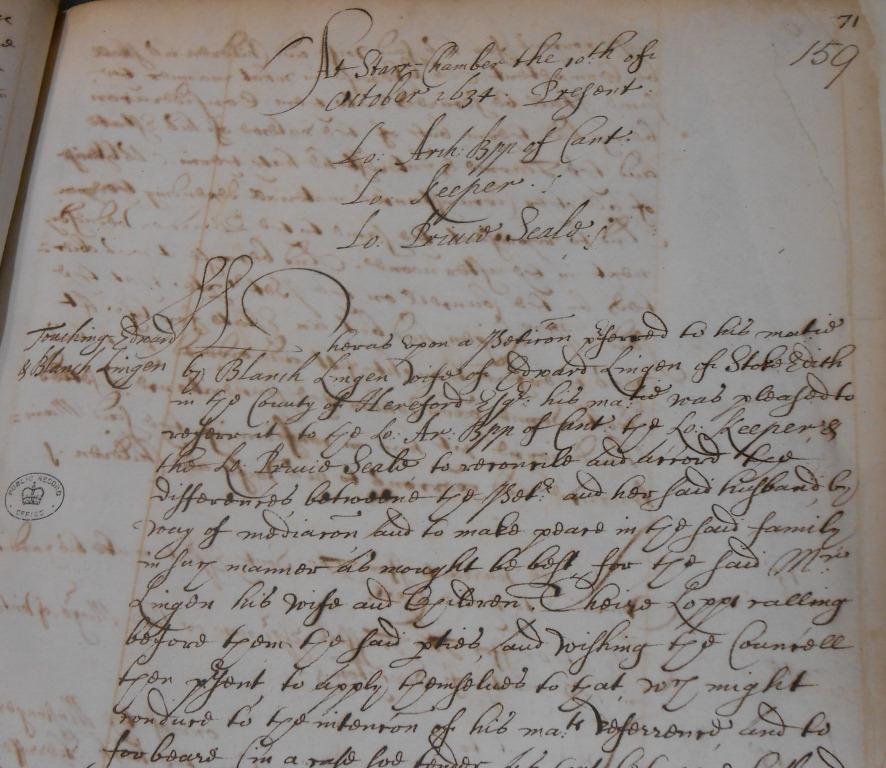 71
159
At Starr-Chamber the 10th of
October 1634. Present.
Lo: Arch: Bpp of Cant:
Lo: Keeper:
Lo: Privie Seale:
Touching Edward
& Blanch Lingen
Wheras upon a Peticon pferred to his matie
by Blanch Lingen wife of Edward Lingen of Stoke Edith
in the County of Hereford Esqr: his matie was pleased to
referr it to the Lo: Ar: Bpp of Cant: the Lo: Keeper &
the Lo: Privie Seale to reconcile and accord the
differences betweene the Petr: and her said husband by
way of mediacon and to make peace in the said family
in such manner as mought be best for the said Mr:
Lingen his wife and Children. Theire Lopps calling
before them the said pties, and wishing the Councell
then psent to apply themselves to that wch might
conduce to the intencon of his mats: referrence and to
forbeare (in a case soe tender
PUBLIC RECORD
OFFICE